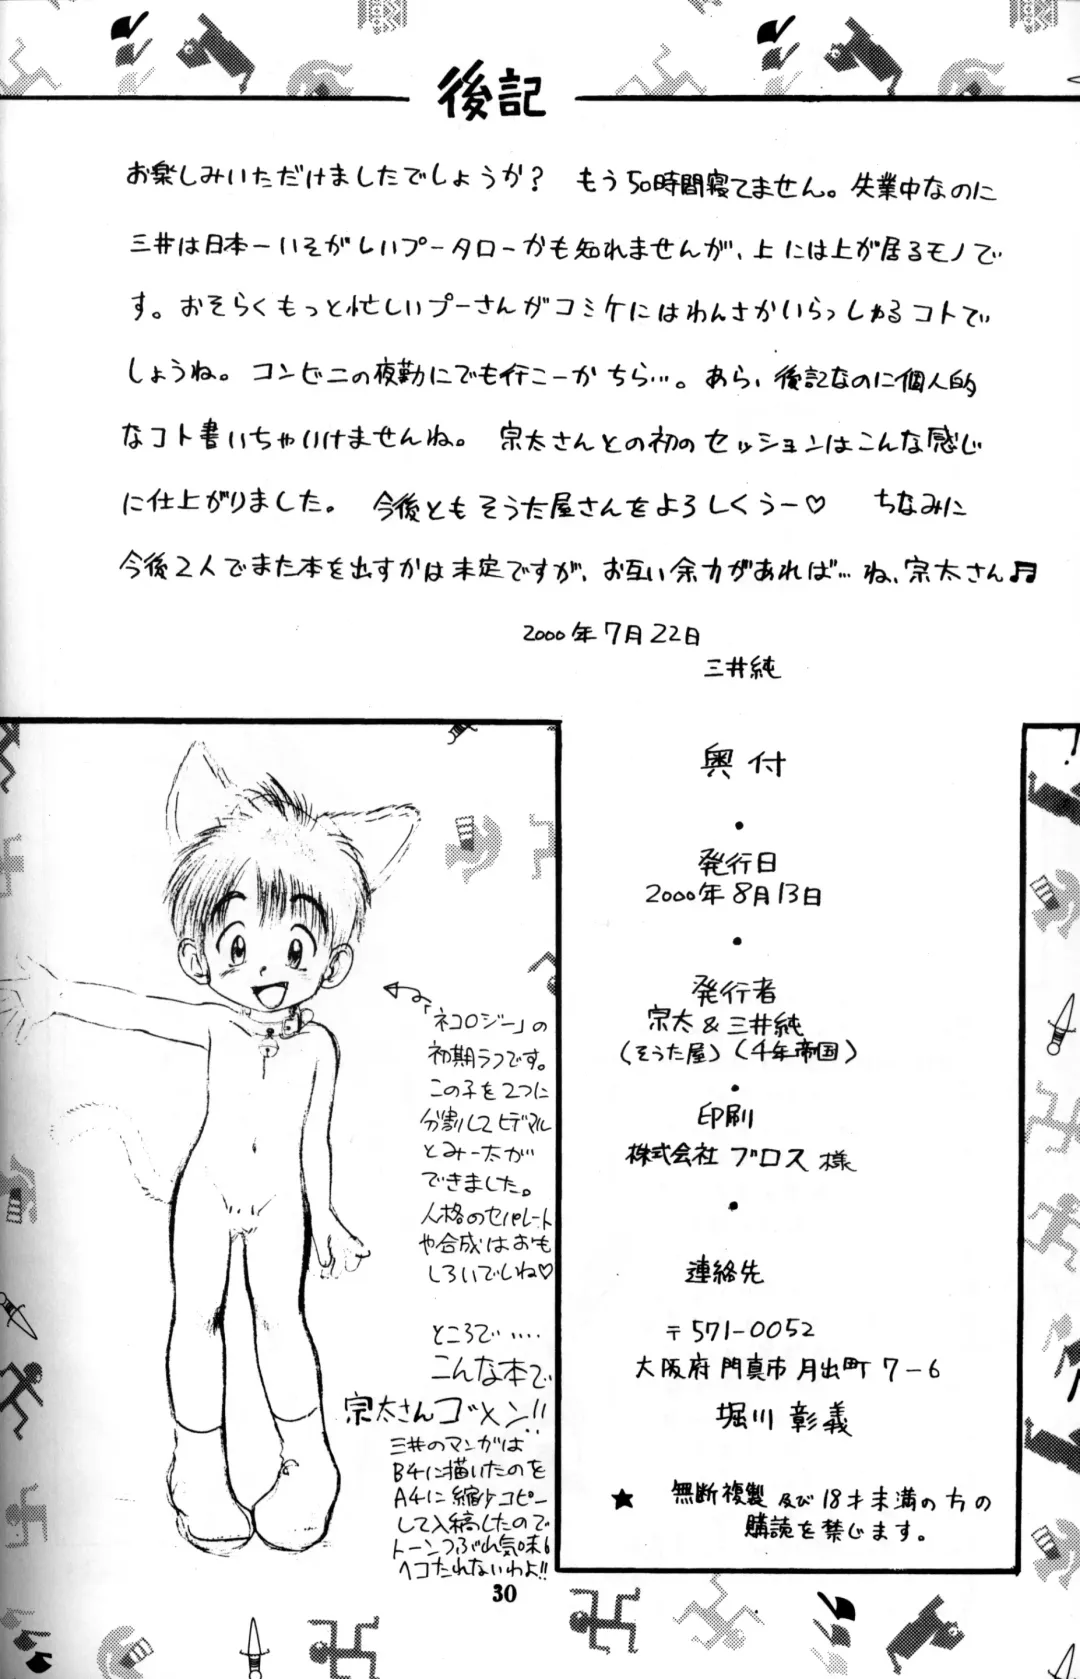 後記
お楽しみいただけましたでしょうか？ もう50時間寝てません。失業中なのに
三井は日本一いそがしいプータローかも知れませんが、上には上が居るモノで
す。おそらくもっと忙しいプーさんがコミケにはわんさかいらっしゃるコトで
しょうね。コンビニの夜勤にでも行こーかちら…。あら、後記なのに個人的
なコト書いちゃいけませんね。 宗太さんとの初のセッションはこんな感じ
に仕上がりました。 今後ともそうた屋さんをよろしくうー♡ ちなみに
今後2人でまた本を出すかは未定ですが、お互い余力があれば…ね、宗太さん♬
2000年7月22日
三井純
「ネコロジー」の
初期ラフです。
この子を2つに
分割してヒデマル
とみー太が
できました。
人格のセパレート
や合成はおも
しろいでしね♡
ところで‥‥‥
こんな本で
宗太さんゴメン!!
三井のマンガは
B4に描いたのを
A4に縮少コピー
して入稿したので
トーンつぶれ気味も
ヘコたれないわよ!!
奥付
・
発行日
2000年8月13日
・
発行者
宗太&三井純
(そうた屋)(千年帝国)
・
印刷
株式会社ブロス様
・
連絡先
〒571-0052
大阪府門真市月出町7-6
堀川彰義
★ 無断複製及び18才未満の方の
購読を禁じます。
30